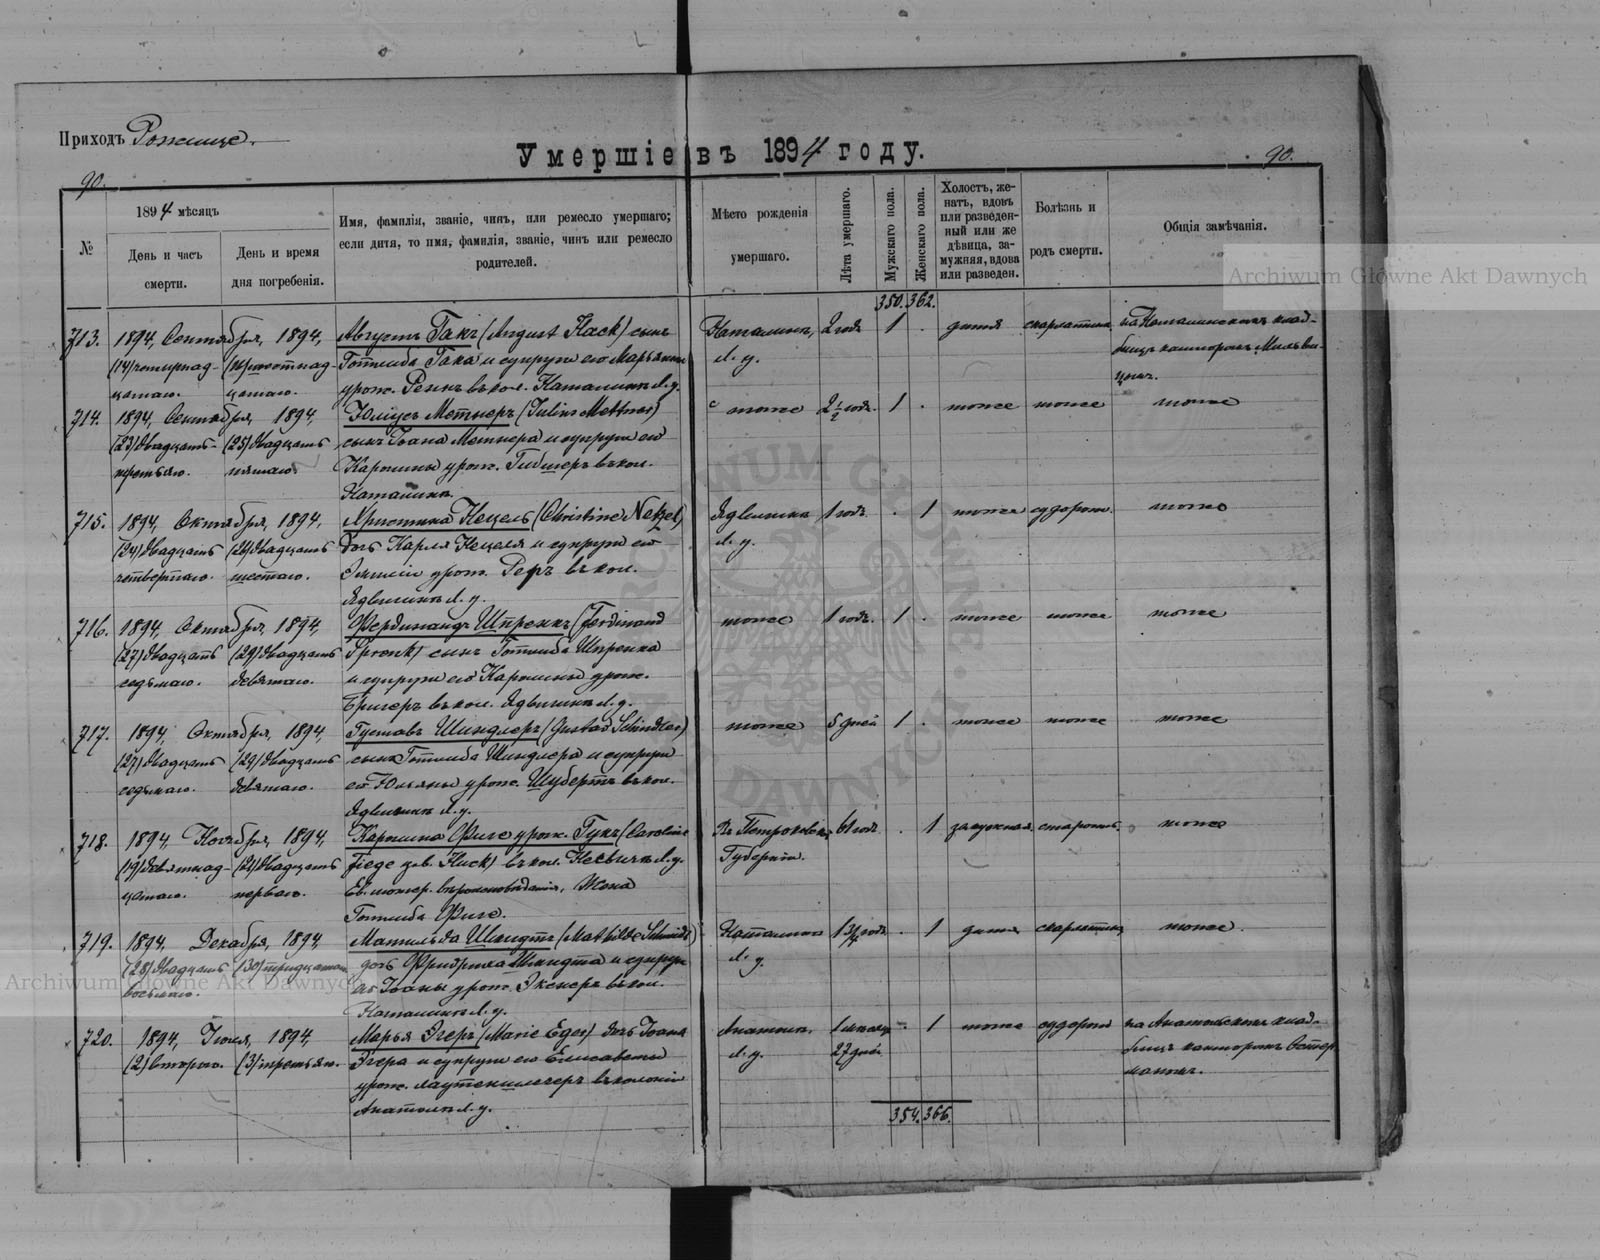 Приходъ Рожище.
Умершіе въ 1894 году.
90.
90.
№
1894 мѣсяцъ
День и часъ смерти.
День и время дня погребенія.
Имя, фамилія, званіе, чинъ, или ремесло умершаго;
если дитя, то имя, фамилія, званіе, чинъ или ремесло
родителей.
Мѣсто рожденія
умершаго.
Лѣта умершаго.
Мужскаго пола.
Женскаго пола.
Холостъ, же-
натъ, вдовъ
или разведен-
ный или же
дѣвица, за-
мужняя, вдова
или разведен.
Болѣзнь и
родъ смерти.
Общія замѣчанія.
Archiwum Główne Akt Dawnych
350. 362.
713. 1894, Сентября, 1894, Августъ Гакъ (August Hack) сынъ Наталинъ, 2 года 1 . дитя скарлатина на Наталинскомъ клад-
(14) четырнад- (16) шестнад- Готлиба Гака и супруги его Марьянны Л. у. бищѣ канторомъ
цатаго. цатаго. урож. въ кол. Наталинѣ Л. у.
714. 1894, Сентября, 1894, Юліусъ Метнеръ (Julius Mettner) тоже 2 1/2 года. 1 . тоже тоже тоже
(23) двадцать- (25) двадцать сынъ Іоана Метнера и супруги его
третьяго. пятаго. Каролины урож. въ кол.
Наталинъ.
715. 1894, Октября, 1894, Христина Нецель (Christine Netzel) Ядвининъ 1 годъ . 1 тоже судороги. тоже
(24) двадцать (26) двадцать дочь Карла Нецеля и супруги его Л. у.
четвертаго. шестаго. Эмиліи урож. въ кол.
Ядвининѣ Л. у.
716. 1894, Октября, 1894, Фердинандъ Шпренкъ (Ferdinand тоже 1 годъ. 1 . тоже тоже тоже
(27) двадцать (29) двадцать Sprenk) сынъ Готлиба Шпренка
седьмаго. девятаго. и супруги его Каролины урож.
въ кол. Ядвининѣ Л. у.
717. 1894, Октября, 1894, Густавъ Шиндлеръ (Gustav Schindler) тоже 5 дней 1 . тоже тоже тоже
(27) двадцать (29) двадцать сынъ Готлиба Шиндлера и супруги
седьмаго. девятаго. его Юльяны урож. Шубертъ въ кол.
Ядвининѣ Л. у.
718. 1894, Ноября, 1894, Каролина Фиге урож. Гукъ (Caroline Въ Петроковской 61 годъ . 1 замужняя старость тоже
(19) девятнад- (21) двадцать geb. Huck) въ кол. Несвичъ Л. у. Губерніи.
цатаго. перваго. Ев. лютер. вѣроисповѣданія, Жена
Готлиба Фиге.
719. 1894, Декабря, 1894, Матильда Шмидтъ (Mathilde Schmidt) Наталинъ 1 3/4 года . 1 дитя скарлатина тоже.
(28) двадцать (30) тридцатаго дочь Фридриха Шмидта и супруги Л. у.
восьмаго. его Іоаны урож. въ кол.
Archiwum Główne Akt Dawnych
Наталинѣ Л. у.
720. 1894, Іюля, 1894, Марья Эгеръ (Marie Eger) дочь Іоана Анатолія. 1 мѣсяцъ . 1 тоже судороги на Анатольскомъ клад-
(2) втораго. (3) третьяго. Эгера и супруги его Елисаветы Л. у. 27 дней бищѣ канторомъ Остер-
урож. Лаутеншлегеръ въ колоніи маномъ.
Анатолія Л. у.
354. 366.
ARCHIWUM GŁÓWNE AKT DAWNYCH